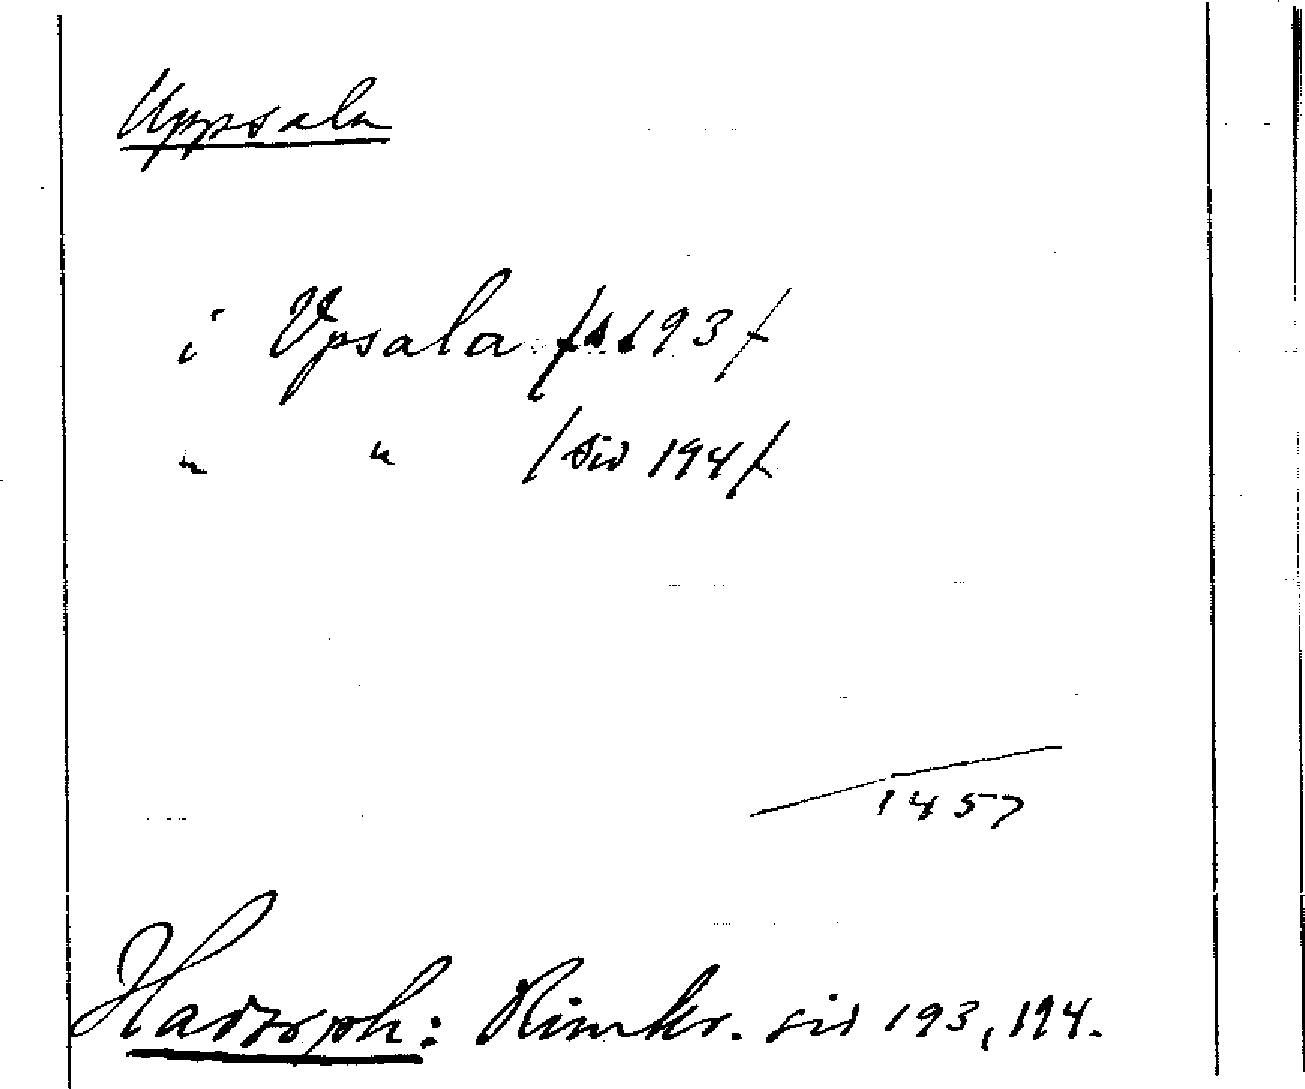 Uppsala
i Vpsala /s 193/
" " /sid 194/
1457
Hadorph: Rimkr. sid 193, 194.